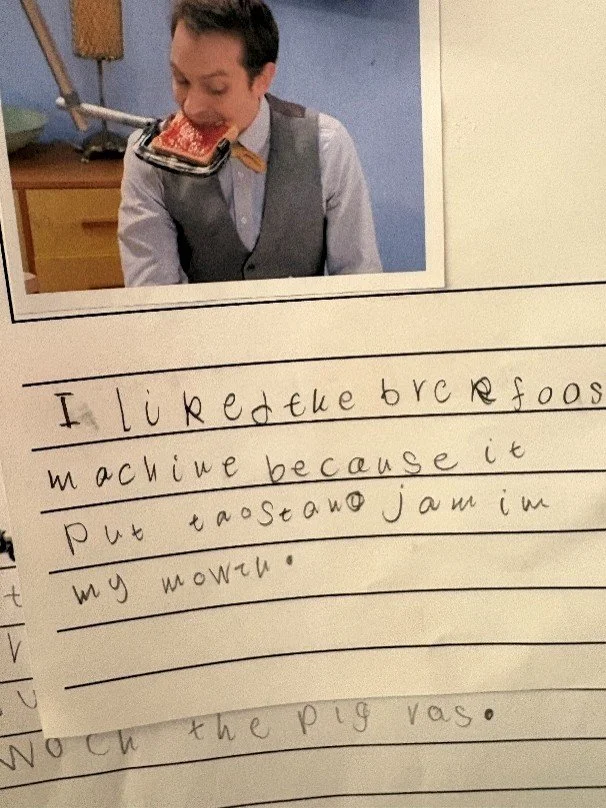 I likedthe brekfoos
machine because it
put taostand jam im
my mowth.
woch the pig ras.